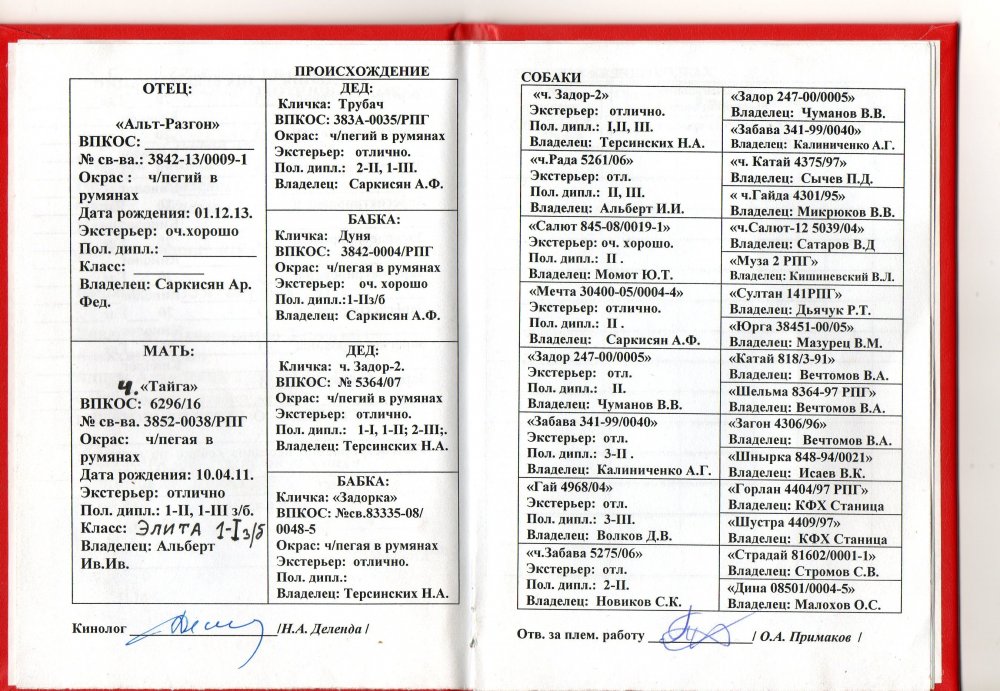 ПРОИСХОЖДЕНИЕ
ОТЕЦ:
«Альт-Разгон»
ВПКОС: _______________
№ св-ва.: 3842-13/0009-1
Окрас : ч/пегий в
румянах
Дата рождения: 01.12.13.
Экстерьер: оч.хорошо
Пол. дипл.: _____________
Класс: __________
Владелец: Саркисян Ар.
Фед.
МАТЬ:
ч. «Тайга»
ВПКОС: 6296/16
№ св-ва. 3852-0038/РПГ
Окрас: ч/пегая в
румянах
Дата рождения: 10.04.11.
Экстерьер: отлично
Пол. дипл.: 1-II, 1-III з/б.
Класс: ЭЛИТА 1-I з/б
Владелец: Альберт
Ив.Ив.
ДЕД:
Кличка: Трубач
ВПКОС: 383А-0035/РПГ
Окрас: ч/пегий в румянах
Экстерьер: отлично.
Пол. дипл.: 2-II, 1-III.
Владелец: Саркисян А.Ф.
БАБКА:
Кличка: Дуня
ВПКОС: 3842-0004/РПГ
Окрас: ч/пегая в румянах
Экстерьер: оч. хорошо
Пол. дипл.:1-IIз/б
Владелец: Саркисян А.Ф.
ДЕД:
Кличка: ч. Задор-2.
ВПКОС: № 5364/07
Окрас: ч/пегий в румянах
Экстерьер: отлично.
Пол. дипл.: 1-I, 1-II; 2-III;.
Владелец: Терсинских Н.А.
БАБКА:
Кличка: «Задорка»
ВПКОС: №св.83335-08/
0048-5
Окрас: ч/пегая в румянах
Экстерьер: отлично.
Пол. дипл.:
Владелец: Терсинских Н.А.
Кинолог ____________________/Н.А. Деленда /
СОБАКИ
«ч. Задор-2»
Экстерьер: отлично.
Пол. дипл.: I,II, III.
Владелец: Терсинских Н.А.
«ч.Рада 5261/06»
Экстерьер: отл.
Пол. дипл.: II, III.
Владелец: Альберт И.И.
«Салют 845-08/0019-1»
Экстерьер: оч. хорошо.
Пол. дипл.: II .
Владелец: Момот Ю.Т.
«Мечта 30400-05/0004-4»
Экстерьер: отлично.
Пол. дипл.: II .
Владелец: Саркисян А.Ф.
«Задор 247-00/0005»
Экстерьер: отл.
Пол. дипл.: II.
Владелец: Чуманов В.В.
«Забава 341-99/0040»
Экстерьер: отл.
Пол. дипл.: 3-II .
Владелец: Калиниченко А.Г.
«Гай 4968/04»
Экстерьер: отл.
Пол. дипл.: 3-III.
Владелец: Волков Д.В.
«ч.Забава 5275/06»
Экстерьер: отл.
Пол. дипл.: 2-II.
Владелец: Новиков С.К.
«Задор 247-00/0005»
Владелец: Чуманов В.В.
«Забава 341-99/0040»
Владелец: Калиниченко А.Г.
«ч. Катай 4375/97»
Владелец: Сычев П.Д.
« ч.Гайда 4301/95»
Владелец: Микрюков В.В.
«ч.Салют-12 5039/04»
Владелец: Сатаров В.Д
«Муза 2 РПГ»
Владелец: Кишиневский В.Л.
«Султан 141РПГ»
Владелец: Дьячук Р.Т.
«Юрга 38451-00/05»
Владелец: Мазурец В.М.
«Катай 818/3-91»
Владелец: Вечтомов В.А.
«Шельма 8364-97 РПГ»
Владелец: Вечтомов В.А.
«Загон 4306/96»
Владелец: Вечтомов В.А.
«Шнырка 848-94/0021»
Владелец: Исаев В.К.
«Горлан 4404/97 РПГ»
Владелец: КФХ Станица
«Шустра 4409/97»
Владелец: КФХ Станица
«Страдай 81602/0001-1»
Владелец: Стромов С.В.
«Дина 08501/0004-5»
Владелец: Малохов О.С.
Отв. за плем. работу ______________/ О.А. Примаков /